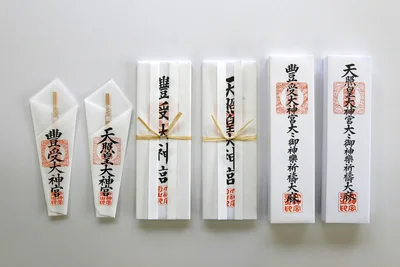 豊受大神宮
天照皇大神宮
豊受大神宮
天照皇大神宮
豊受大神宮大々御神楽祈祷大麻
天照皇大神宮大々御神楽祈祷大麻